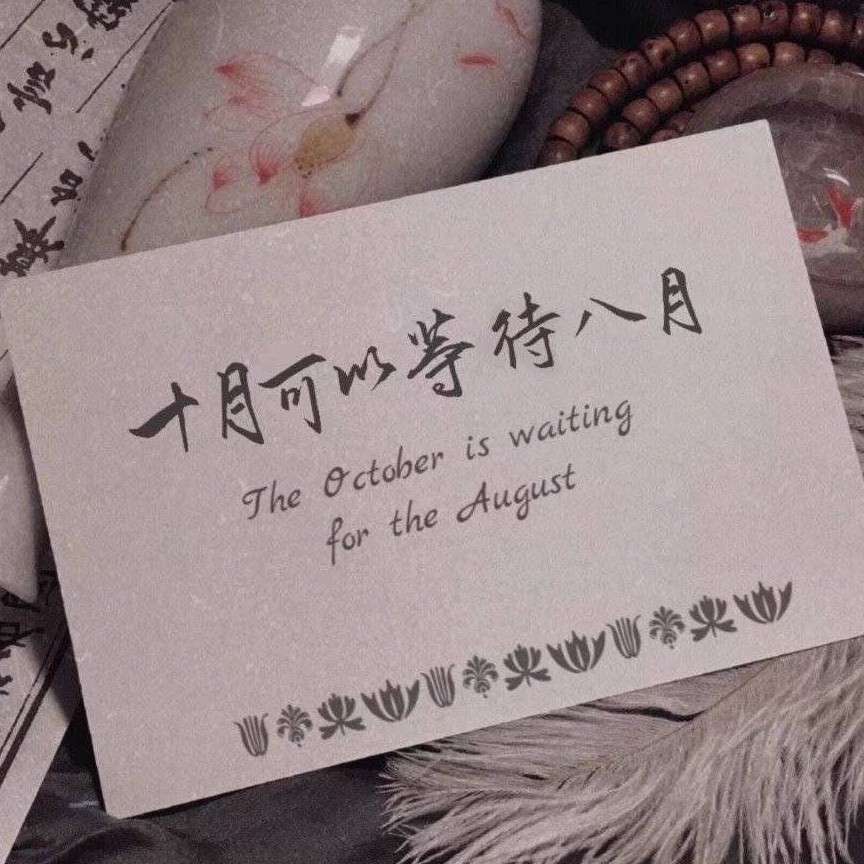 十月可以等待八月
The October is waiting
for the August